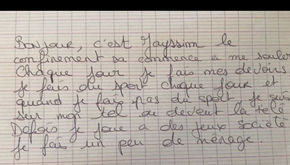 Bonjour, c'est Jayssim le
confinement sa commence a me souler
Chaque jour je fais mes devoirs
je fais du sport chaque jour et
quand je fais pas du sport je suis
sur mon tel ou devent la télé
Depois je joue a des jeux société
je fais un peu de ménage.